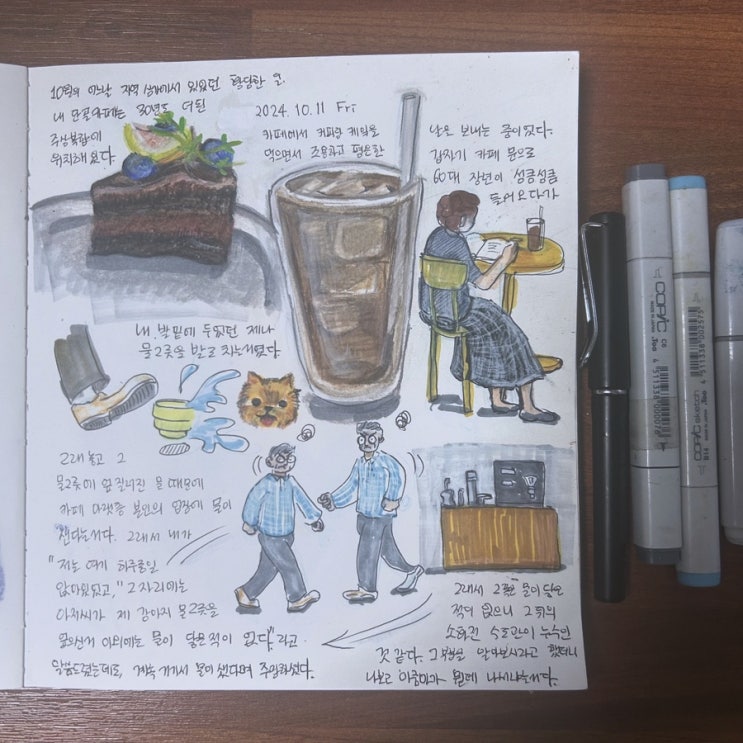 10월의 어느날 지역 상가에서 있었던 황당한 일.
내 단골카페는 30년도 더 된
주상복합에
위치해 있다.
2024. 10. 11 Fri
카페에서 커피랑 케익을
먹으면서 조용하고 평온한
낮을 보내는 중이었다.
갑자기 카페 문으로
60대 장년이 성큼성큼
들어오다가
내 발밑에 두었던 제나
물그릇을 발로 치는게였다.
그래놓고 그
물그릇에 엎질러진 물 때문에
카페 아랫층 본인의 업장에 물이
샌다는거다. 그래서 내가
"저는 여기 하루종일
앉아있었고, 그 자리에는
아저씨가 제 강아지 물그릇을
엎으신거 이외에는 물이 닿은적이 없다"라고
말씀드렸는데도, 계속 거기서 물이 샜다며 주장하셨다.
그래서 그곳은 물이 닿은
적이 없으니 그 뒤의
소화전 수도관이 누수인
것 같다. 그쪽을 알아보시라고 했더니
나보고 아줌마가 뭔데 나서냐는거다.
COPIC
C6
4 511338 000076
COPIC sketch
4 511338 002575